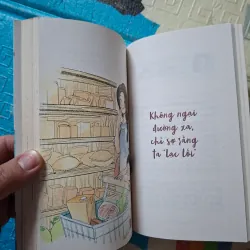 Không ngại
đường xa,
chỉ sợ rằng
ta "lạc lối"